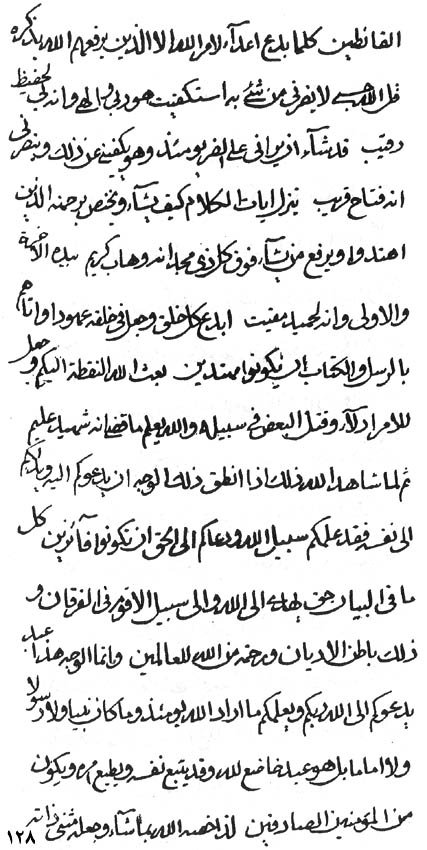 القانطين كلما بدع اعدآء لامر الله الا الذين يرفعهم الله بذكره
قل الله حسبي لا يضرني من شئ به استكفيت هو ربي والهي وانه لي لحفيظ
رقيب قد شآء ان يراني على الضر يومئذ وهو يكفيني عن ذلك وينصرني
انه فتاح قريب ينزل ايات الكلام كيف يشآء ويختص برحمته الذين
اهتدوا ويرفع من يشآء فوق كل ذي مجد انه وهاب كريم بيده الآخرة
والاولى وانه لحميد مقيت ابدع كل خلق وجعل في خلقه عمودا واتاهم
بالرسل والكتاب ان يكونوا مهتدين بعث الله النقطة اليكم وجعل
للامر ادلآء وقتل البعض في سبيله والله يعلم ما قضى انه شهيد عليم
ثم لما شاهد الله ذلك اذا انطق ذلك الوجه ان يدعوكم اليه ويذكركم
الى نفسه فقد علمكم سبيل الله ودعاكم الى الحق ان تكونوا فآئزين كل
ما في البيان حق يهدي الى الله والى سبيل الاقوم في الفرقان و
ذلك باطن الاديان ورحمة من الله للعالمين وانما الوجه هذا عبد
يدعوكم الى الله ربكم ويعلمكم ما اراد الله يومئذ وما كان نبيا ولا رسولا
ولا اماما بل هو عبد خاضع لله وقد يتبع نفسه ويطيع امره ويكون
من المؤمنين الصادقين لذا خصه الله بما شآء وجعله مثنى ذاته
١٢٨